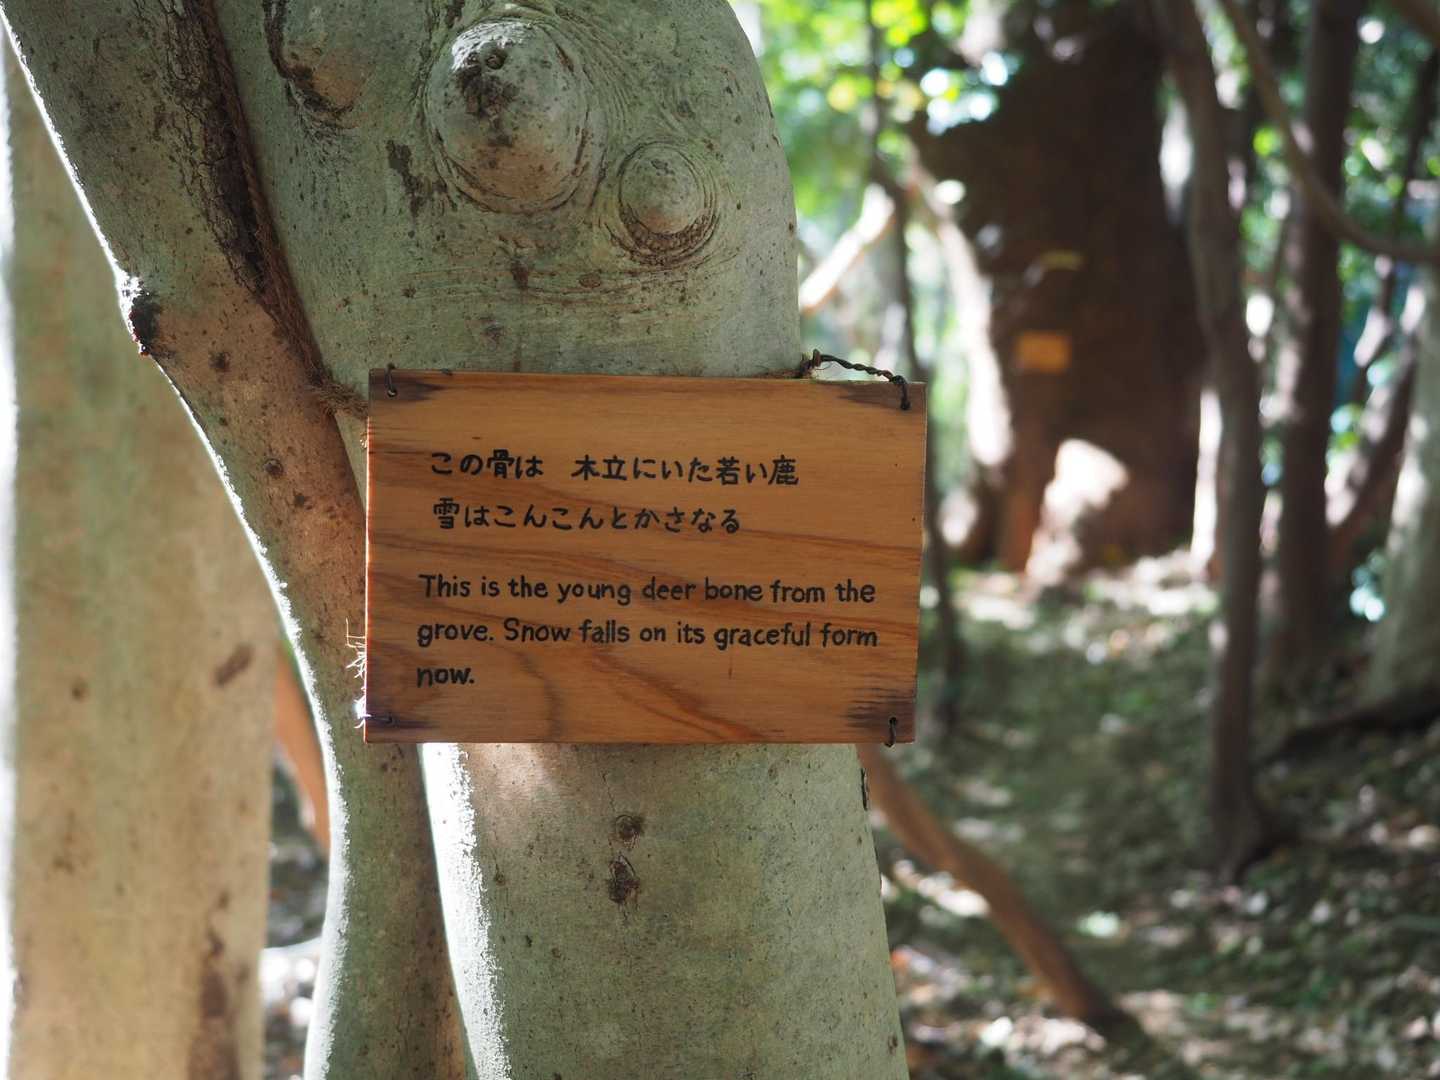 この骨は　木立にいた若い鹿
雪はこんこんとかさなる
This is the young deer bone from the
grove. Snow falls on its graceful form
now.